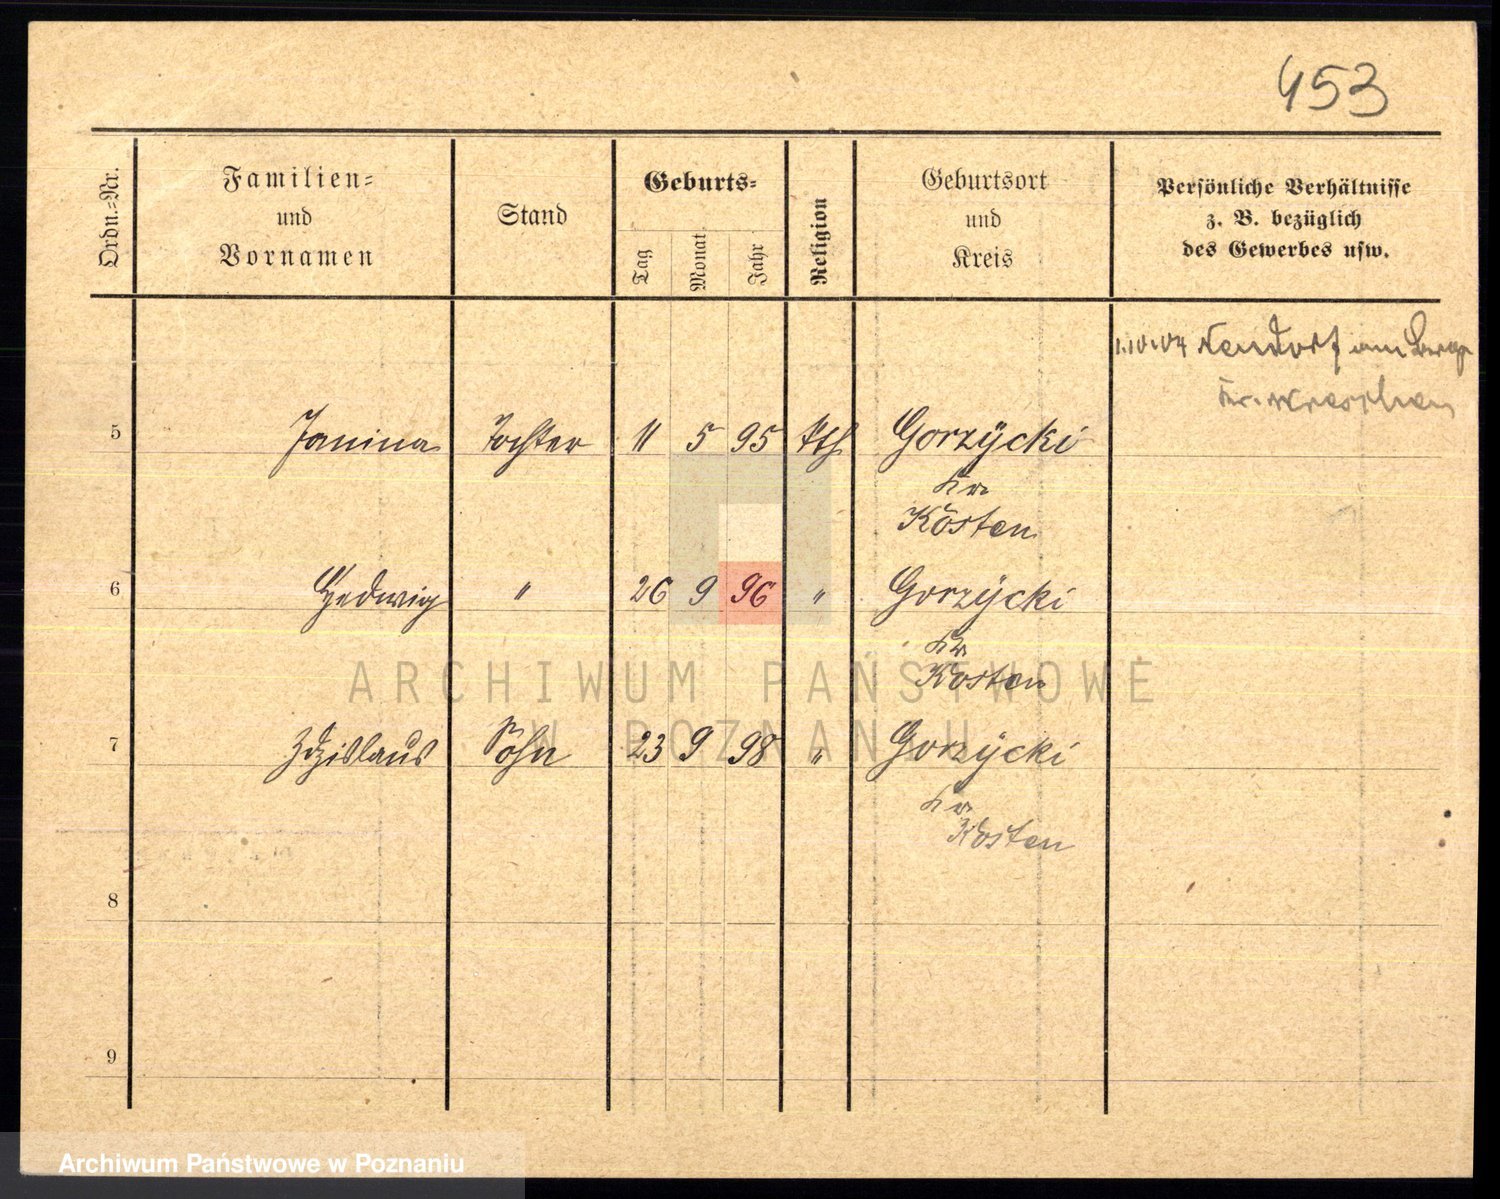 453
Ordn.-Nr.
Familien-
und
Vornamen
Stand
Geburts-
Tag
Monat
Jahr
Religion
Geburtsort
und
Kreis
Persönliche Verhältnisse
z. B. bezüglich
des Gewerbes usw.
1.10.04 Neudorf am Berge
Kr. Wreschen
5 Janina Tochter 11 5 95 kth Gorzÿcki
Kr.
Kosten
6 Hedwig " 26 9 96 " Gorzÿcki
Kr.
Kosten
7 Zdzislaus Sohn 23 9 98 " Gorzÿcki
Kr.
Kosten
8
9
ARCHIWUM PAŃSTWOWE
W POZNANIU
Archiwum Państwowe w Poznaniu